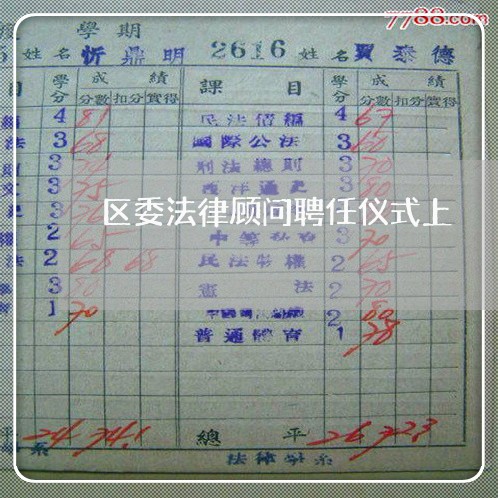 7788.com
學期
姓名 忻鼎明 2616 姓名 賈泰德
目 學分 成績 課目 學分 成績
分數 扣分 實得 分數 扣分 實得
4 81 民法債編 4 67
法 3 68 國際公法 3 60
3 刑法總則 3 70
3 75 西洋通史 3 80
區委法律顾问聘任仪式上
2 65 3 70
法 2 68 68 民法物權 2 65
3 80 憲法 2 70
1 70 2 80
普通體育 1 78
24 74.1 總平 26 72.3
系 法律學系